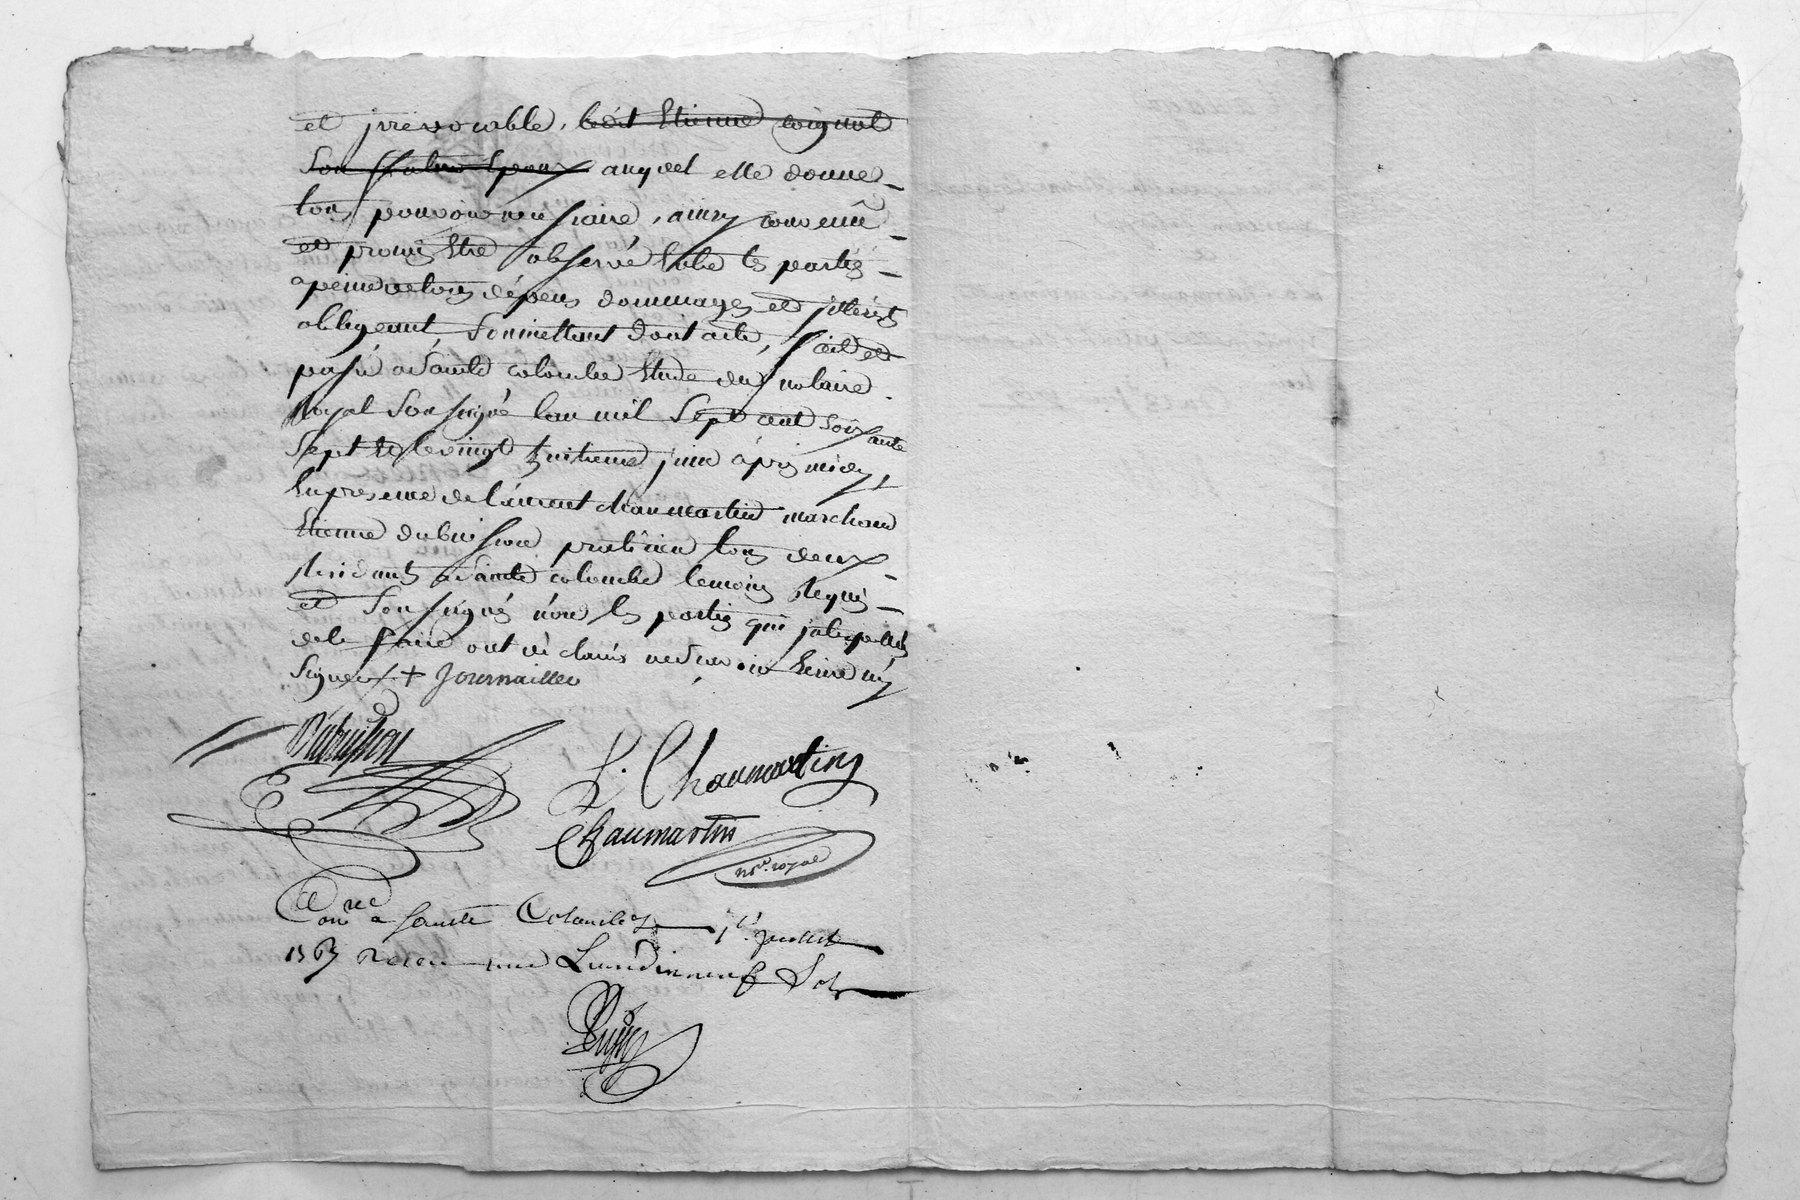 et jrrevocable, ledit Etienne Coignet
Son futur Epoux auquel elle donne
tout pouvoir necessaire, ainsy convenu
et promis Etre observé Entre les parties
apeine de tous dépens dommages et jnterests
obligeant, Soumettant dont acte, fait et
passé a Sainte colombe Etude du notaire
Royal Soussigné lan mil Sept cent Soixante
Sept et le vingt huitieme juin aprés midy,
En presence de Laurent chaumartin marchand
Etienne dubuisson praticien tous deux
Residants a Sainte colombe temoins Requis
et Soussignés non les parties qui jnterpellés
de le faire ont déclarés ne Scavoir Ecrire ny
Signer / + Journaillier
Dubuisson
L. Chaumartin
Chaumartin
nore. royal
Con a Sainte Colombe 1er juillet
1767 Recu une Livre dixneuf Sols